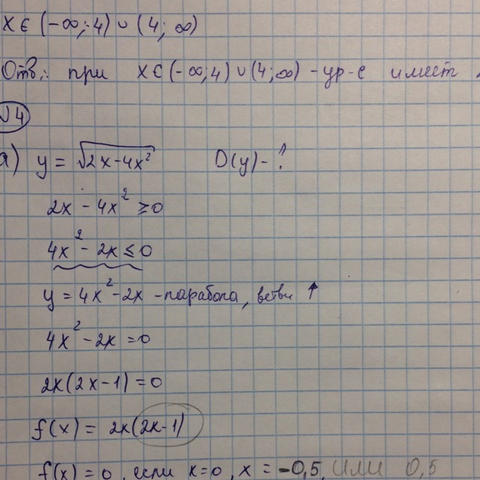 x ∈ (-∞; -4) ∪ (4; ∞)
Отв.: при x ∈ (-∞; 4) ∪ (4; ∞) - ур-е имеет
√4
а) y = √2x-4x² D(y) - ?
2x - 4x² ≥ 0
4x² - 2x ≤ 0
y = 4x² - 2x - парабола, ветви ↑
4x² - 2x = 0
2x(2x-1) = 0
f(x) = 2x(2x-1)
f(x) = 0, если x=0, x = -0,5, или 0,5